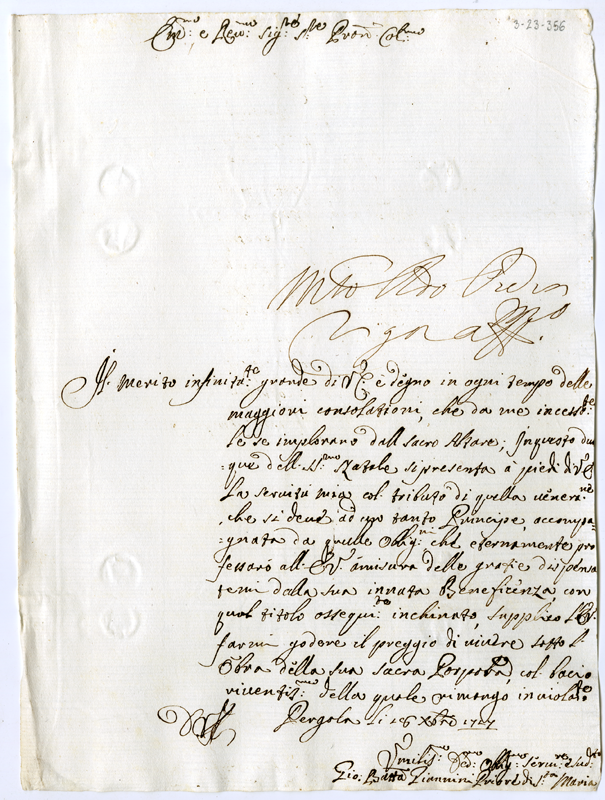 3-23-356
Em:mo e Rev:mo Sig:re S:re Pron Col:mo
Il merito infinita:te grande di V.E. è degno in ogni tempo delle
maggiori consolationi, che da me incess:te
le se implorano dall Sacro Altare; Inquesto dun
=que dell SS:mo Natale sipresenta a piedi di V.E.
la servitù mia col tributo di quella vener:ne
che si deve ad un tanto Principe, accompa
=gnata da quelle Obbg:ni che eternamente pro
fessarò all E.V. amisura delle gratie dispensa
temi dalla sua innata Beneficenza, con
qual titolo ossequi:te inchinato, supplico l'E.V.
farmi godere il preggio di vivere sotto l
Obra della sua sacra Porpora, col bacio
riverentis:mo della quale rimango inviolab:te
Pergola li 16 Xbre 1727
Umilis:mo Dev:mo Obblig:mo Servi:re e Sud:to
Gio: Batta Giannini Priore di S:ta Maria